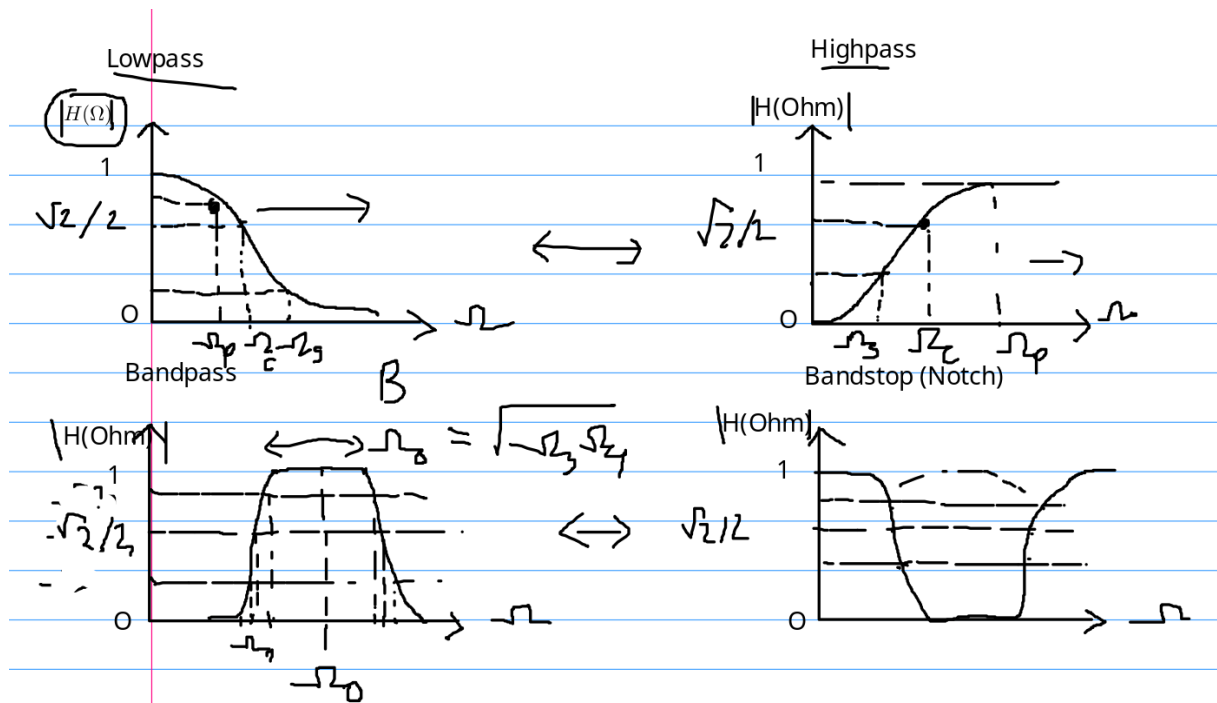 Lowpass
|H(Ω)|
1
√2/2
0
Ωp Ωc Ωs
Ω
Highpass
|H(Ohm)|
1
√2/2
0
Ωs Ωc Ωp
Ω
Bandpass
B
|H(Ohm)|
Ω0 = √Ω3 Ω4
1
√2/2
0
Ω
Ω0
Bandstop (Notch)
|H(Ohm)|
1
√2/2
0
Ω